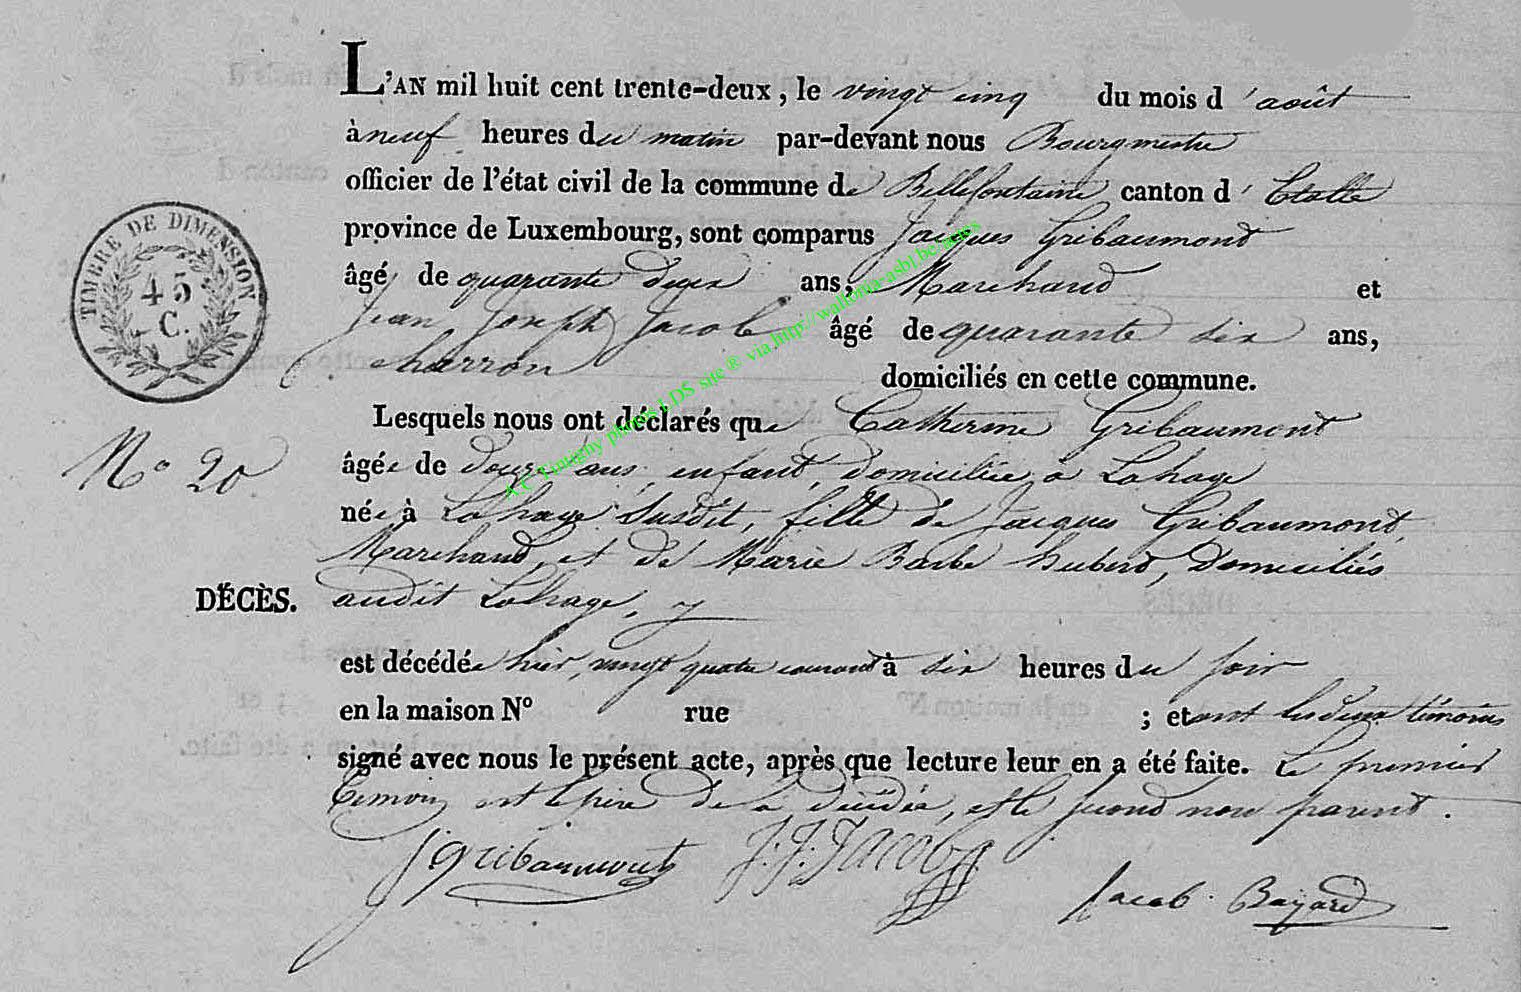 L'AN mil huit cent trente-deux, le vingt cinq du mois d'août
à neuf heures du matin par-devant nous Bourgmestre
officier de l'état civil de la commune de Bellefontaine canton d'Etalle
province de Luxembourg, sont comparus Jacques Gribaumont
âgé de quarante deux ans, Marchand et
Jean Joseph Jacob âgé de quarante six ans,
charron
domiciliés en cette commune.
Lesquels nous ont déclarés que Catherine Gribaumont
N° 20
âgée de douze ans, enfant, domiciliée à Lahage
née à Lahage susdit, fille de Jacques Gribaumont,
Marchand, et de Marie Barbe hubert, domiciliés
DÉCÈS.
audit Lahage,
est décédée hier, vingt quatre courant à six heures du soir
en la maison N° rue ; et ont les deux témoins
signé avec nous le présent acte, après que lecture leur en a été faite. Le premier
témoin est le père de la décédée, et le second non parent.
J Gribaumont J. J. Jacob
Jacob-Bayard
TIMBRE DE DIMENSION
45
C.
A.C Tintigny photos LDS site ® via http://wallonia-asbl.be/actes